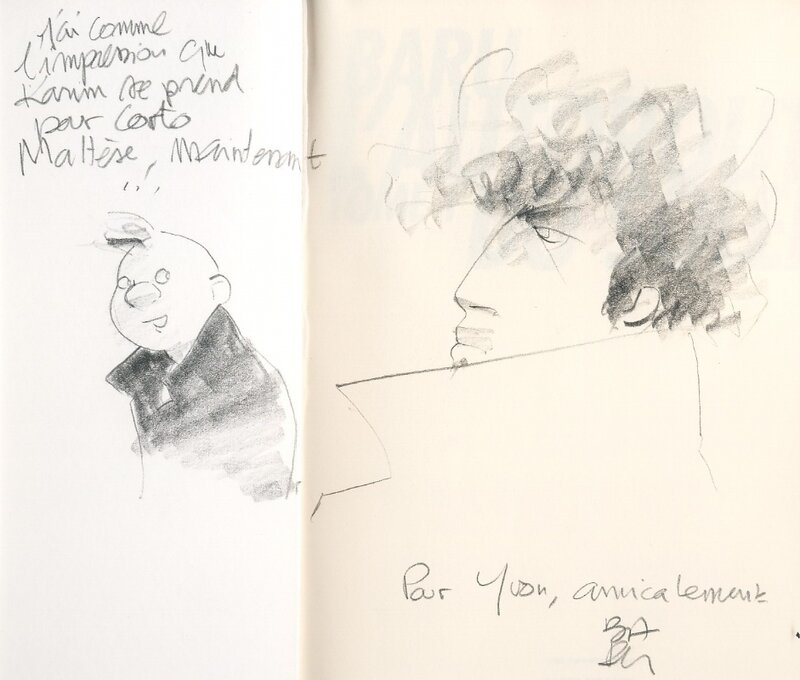 J'ai comme
l'impression que
Karim se prend
pour Corto
Maltèse, maintenant
...
Pour Yvon, amicalement
BA
RU
BARU